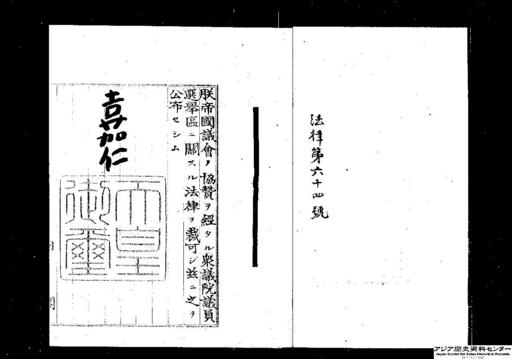 法律第六十四號
朕帝國議會ノ協贊ヲ經タル衆議院議員
選擧區ニ關スル法律ヲ裁可シ茲ニ之ヲ
公布セシム
嘉仁
天皇
御璽
アジア歴史資料センター
Japan Center for Asian Historical Records